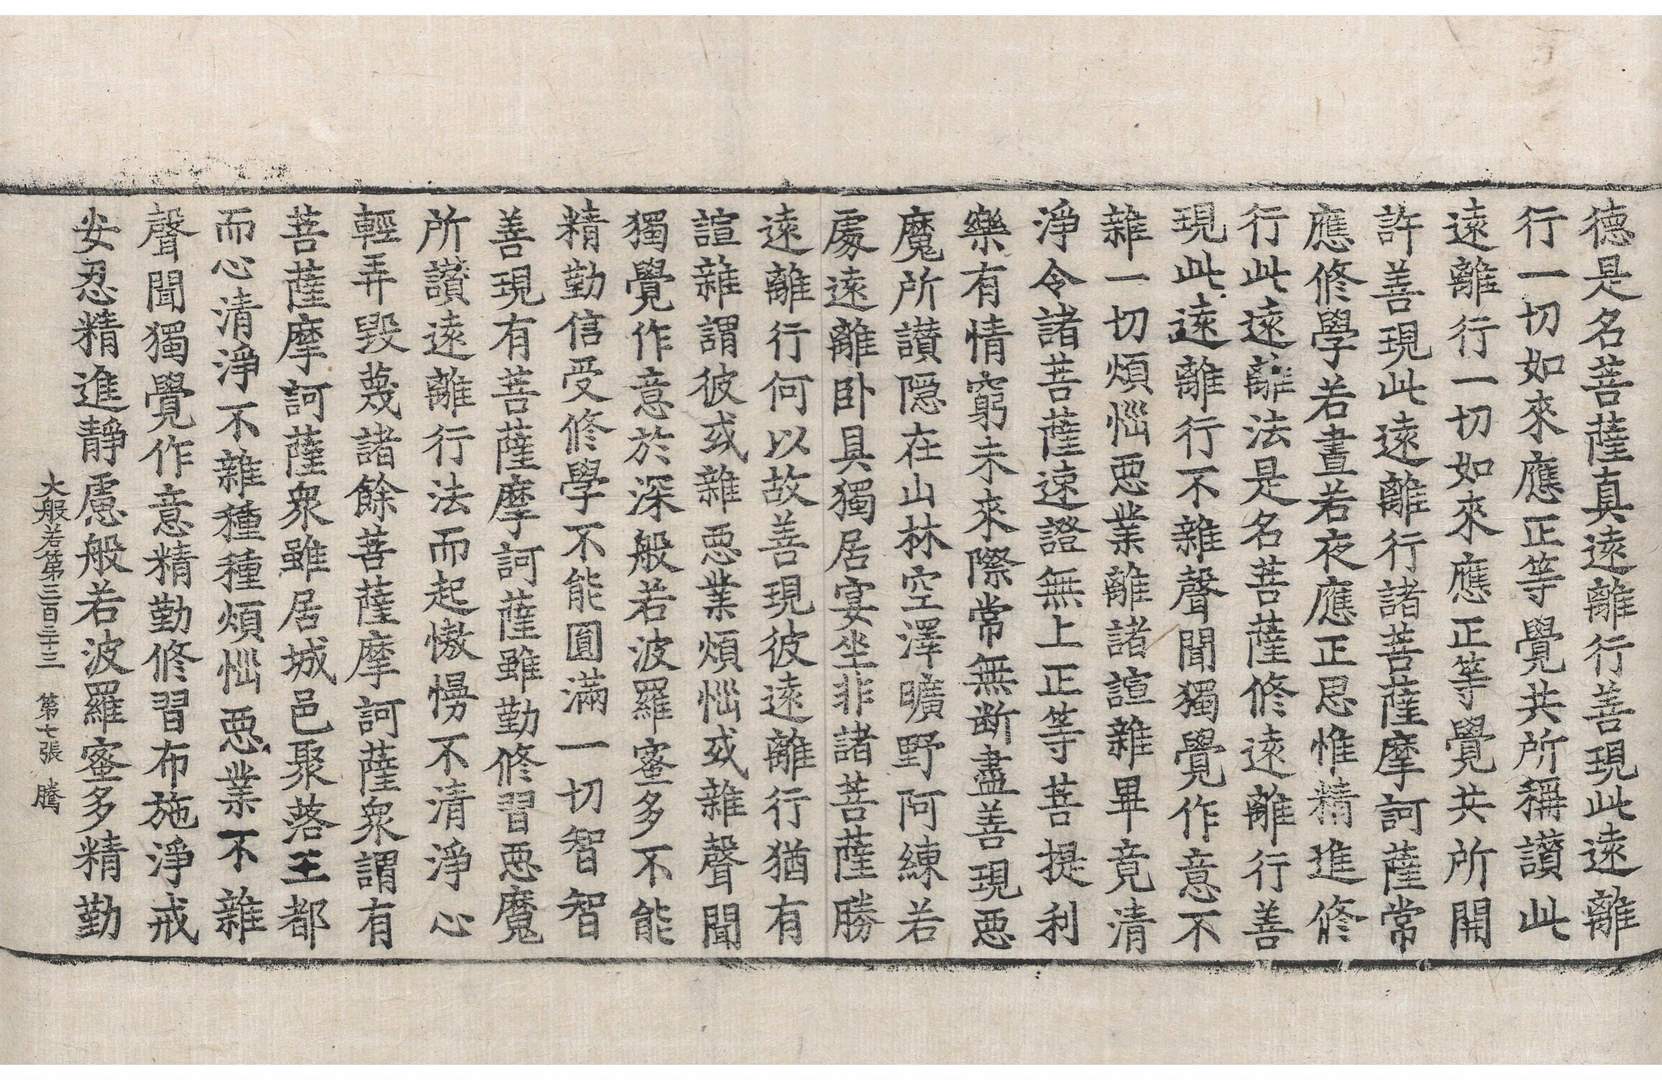 德是名菩薩真遠離行善現此遠離
行一切如來應正等覺共所稱讃此
遠離行一切如來應正等覺共所開
許善現此遠離行諸菩薩摩訶薩常
應修學若晝若夜應正思惟精進修
行此遠離法是名菩薩修遠離行善
現此遠離行不雜聲聞獨覺作意不
雜一切煩惱惡業離諸諠雜畢竟清
淨令諸菩薩速證無上正等菩提利
樂有情窮未來際常無斷盡善現惡
魔所讃隱在山林空澤曠野阿練若
處遠離卧具獨居宴坐非諸菩薩勝
遠離行何以故善現彼遠離行猶有
諠雜謂彼或雜惡業煩惱或雜聲聞
獨覺作意於深般若波羅蜜多不能
精勤信受修學不能圓滿一切智智
善現有菩薩摩訶薩雖勤修習惡魔
所讃遠離行法而起憍慢不清淨心
輕弄毀蔑諸餘菩薩摩訶薩衆謂有
菩薩摩訶薩衆雖居城邑聚落王都
而心清淨不雜種種煩惱惡業不雜
聲聞獨覺作意精勤修習布施淨戒
安忍精進靜慮般若波羅蜜多精勤
大般若第三百三十三 第七張 騰